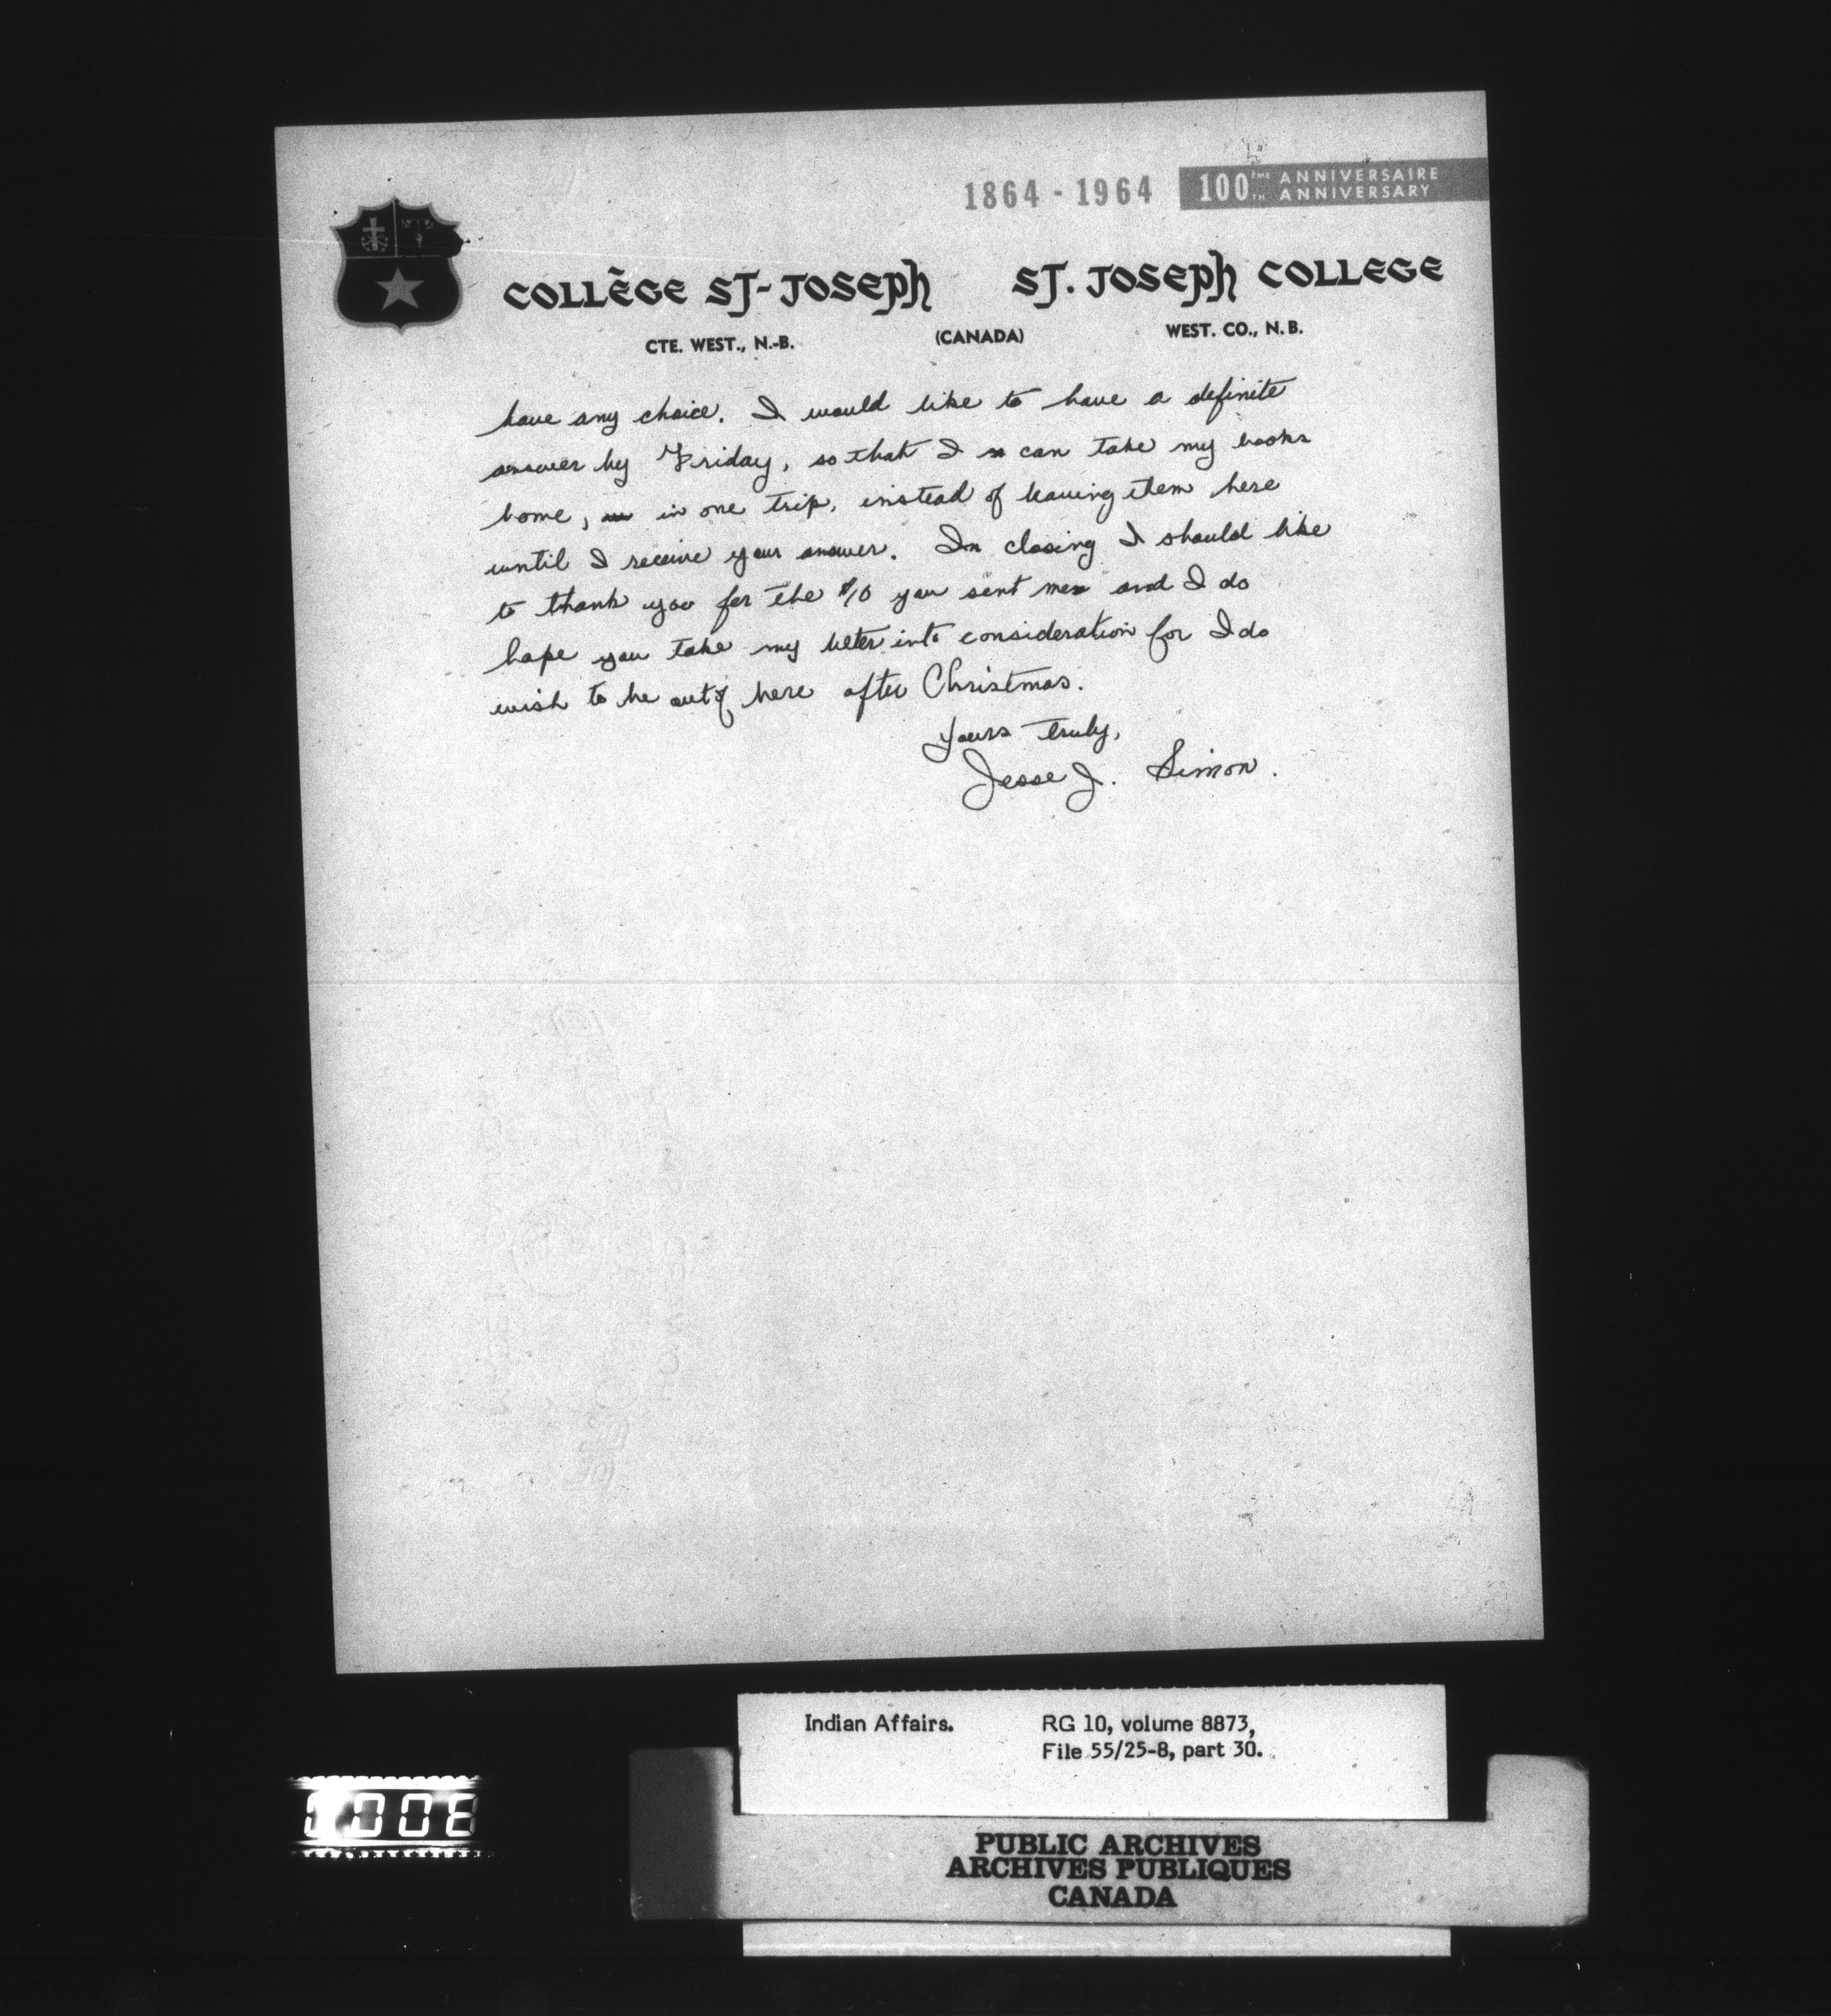 1864 - 1964 100ÈME TH ANNIVERSAIRE ANNIVERSARY
COLLÈGE ST-JOSEPH ST. JOSEPH COLLEGE
CTE. WEST., N.-B. (CANADA) WEST. CO., N.B.
have any choice. I would like to have a definite
answer by Friday, so that I can take my books
home, in one trip, instead of leaving them here
until I receive your answer. In closing I should like
to thank you for the $10 you sent me and I do
hope you take my letter into consideration for I do
wish to be out of here after Christmas.
Yours truly,
Jesse J. Simon.
Indian Affairs. RG 10, volume 8873,
File 55/25-8, part 30.
PUBLIC ARCHIVES
ARCHIVES PUBLIQUES
CANADA